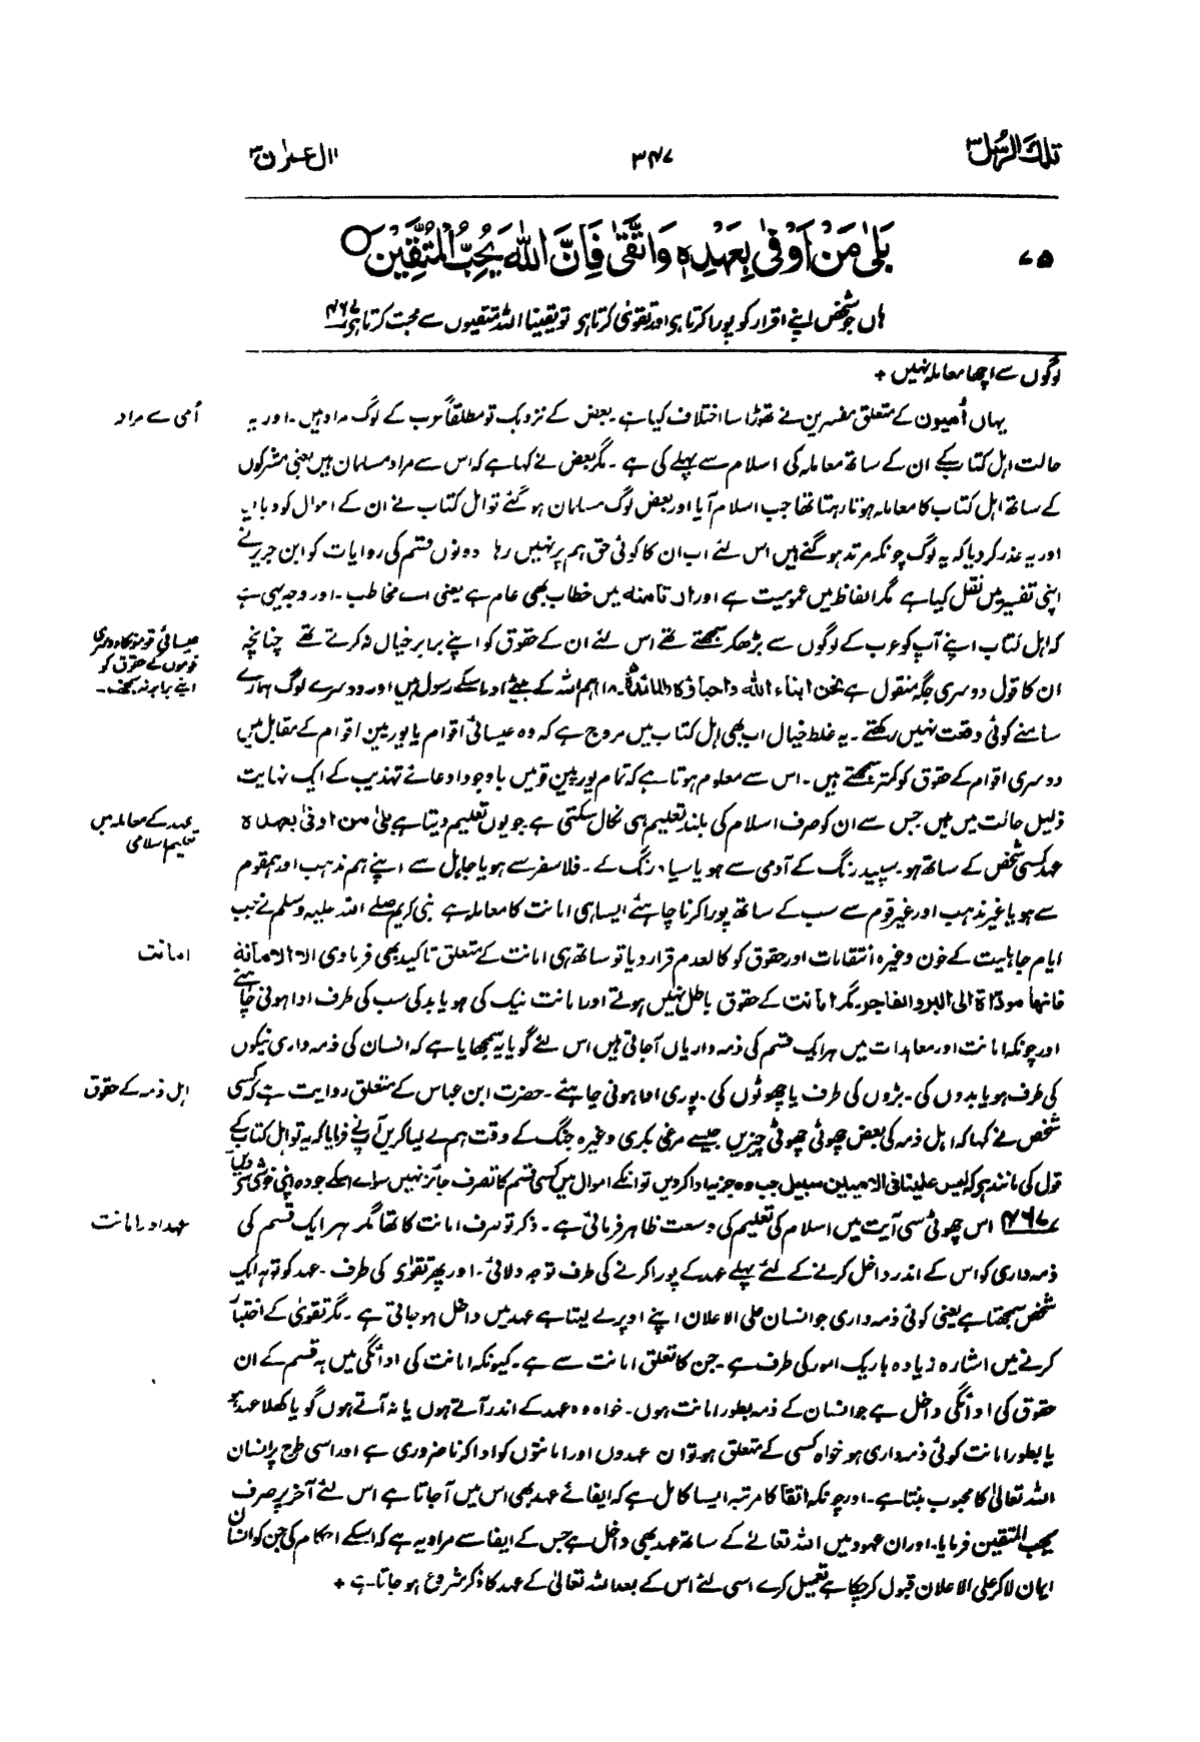 تلك الرسل ۳
۳۴۷
اٰل عمرٰن ۳
۷۵
بَلٰى مَنْ اَوْفٰى بِعَهْدِهٖ وَاتَّقٰى فَاِنَّ اللّٰهَ يُحِبُّ الْمُتَّقِيْنَ ○
ہاں جو شخص اپنے اقرار کو پورا کرتا ہو اور تقویٰ کرتا ہو تو یقینا اللہ متقیوں سے محبت کرتا ہو ۴۶۷
لوگوں سے اچھا معاملہ نہیں +
اُمی سے مراد
یہاں اُمیون کے متعلق مفسرین نے تھوڑا سا اختلاف کیا ہے۔ بعض کے نزدیک تو مطلقاً عرب کے لوگ مراد ہیں۔ اور یہ
حالت اہل کتاب کے ان کے ساتھ معاملہ کی اسلام سے پہلے کی ہے۔ مگر بعض نے کہا ہے کہ اس سے مراد مسلمان ہیں یعنی مشرکوں
کے ساتھ اہل کتاب کا معاملہ ہوتا رہتا تھا جب اسلام آیا اور بعض لوگ مسلمان ہو گئے تو اہل کتاب نے ان کے اموال کو دبا لیا
اور یہ عذر کر دیا کہ یہ لوگ چونکہ مرتد ہو گئے ہیں اس لئے اب ان کا کوئی حق ہم پر نہیں رہا دونوں قسم کی روایات کو ابن جریر نے
اپنی تفسیر میں نقل کیا ہے مگر الفاظ میں عمومیت ہے اور ان تامنه میں خطاب بھی عام ہے یعنی اے مخاطب۔ اور وجہ یہی ہے
عیسائی قوموں کا دوسری
قوموں کے حقوق کو
اپنے برابر نہ سمجھنا۔
کہ اہل کتاب اپنے آپ کو عرب کے لوگوں سے بڑھکر سمجھتے تھے اس لئے ان کے حقوق کو اپنے برابر خیال نہ کرتے تھے چنانچہ
ان کا قول دوسری جگہ منقول ہے نحن ابناء الله واحباؤه (المائدة۔ ۱۸) ہم اللہ کے بیٹے اور اسکے رسول ہیں اور دوسرے لوگ ہمارے
سامنے کوئی وقعت نہیں رکھتے۔ یہ غلط خیال اب بھی اہل کتاب میں مروج ہے کہ وہ عیسائی اقوام یا یورپین اقوام کے مقابل میں
دوسری اقوام کے حقوق کو کمتر سمجھتے ہیں۔ اس سے معلوم ہوتا ہے کہ تمام یورپین قومیں باوجود ادعائے تہذیب کے ایک نہایت
عہد کے معاملہ میں
تعلیم اسلامی
ذلیل حالت میں ہیں جس سے ان کو صرف اسلام کی بلند تعلیم ہی نکال سکتی ہے جو یوں تعلیم دیتا ہے بلیٰ من اوفیٰ بعهده
عہد کسی شخص کے ساتھ ہو۔ سپید رنگ کے آدمی سے ہو یا سیاہ رنگ کے۔ فلاسفر سے ہو یا جاہل سے اپنے ہم مذہب اور ہمقوم
سے ہو یا غیر مذہب اور غیر قوم سے سب کے ساتھ پورا کرنا چاہئے ایسا ہی امانت کا معاملہ ہے نبی کریم صلے اللہ علیہ وسلم نے جب
امانت
ایام جاہلیت کے خون وغیرہ انتقامات اور حقوق کو کالعدم قرار دیا تو ساتھ ہی امانت کے متعلق تاکید بھی فرما دی الا الامانة
فانها موداة الی البر والفاجر۔ مگر امانت کے حقوق باطل نہیں ہوتے اور امانت نیک کی ہو یا بد کی سب کی طرف ادا ہونی چاہئے
اور چونکہ امانت اور معاہدات میں ہر ایک قسم کی ذمہ داریاں آجاتی ہیں اس لئے گویا یہ سمجھایا ہے کہ انسان کی ذمہ داری نیکوں
اہل ذمہ کے حقوق
کی طرف ہو یا بدوں کی۔ بڑوں کی طرف یا چھوٹوں کی۔ پوری ادا ہونی چاہئے۔ حضرت ابن عباس کے متعلق روایت ہے کہ کسی
شخص نے کہا کہ اہل ذمہ کی بعض چھوٹی چھوٹی چیزیں جیسے مرغی بکری وغیرہ جنگ کے وقت ہم لے لیا کریں آپ نے فرمایا کہ یہ تو اہل کتاب کے
قول کی مانند ہی کہ لیس علینا فی الامیین سبیل جب وہ جزیہ ادا کر دیں تو انکے اموال میں کسی قسم کا تصرف جائز نہیں سوائے اسکے جو وہ اپنی خوشی سے دیں
عہد اور امانت
۴۶۷ اس چھوٹی سی آیت میں اسلام کی تعلیم کی وسعت ظاہر فرمائی ہے۔ ذکر تو صرف امانت کا تھا مگر ہر ایک قسم کی
ذمہ داری کو اس کے اندر داخل کرنے کے لئے پہلے عہد کے پورا کرنے کی طرف توجہ دلائی۔ اور پھر تقویٰ کی طرف۔ عہد کو تو ہر ایک
شخص سمجھتا ہے یعنی کوئی ذمہ داری جو انسان علی الاعلان اپنے اوپر لے لیتا ہے عہد میں داخل ہو جاتی ہے۔ مگر تقویٰ کے اختیار
کرنے میں اشارہ زیادہ باریک امور کی طرف ہے۔ جن کا تعلق امانت سے ہے۔ کیونکہ امانت کی ادائگی میں ہر قسم کے ان
حقوق کی ادائگی داخل ہے جو انسان کے ذمہ بطور امانت ہوں۔ خواہ وہ عہد کے اندر آتے ہوں یا نہ آتے ہوں گویا کھلا عہد ہو
یا بطور امانت کوئی ذمہ داری ہو خواہ کسی کے متعلق ہو تو ان عہدوں اور امانتوں کو ادا کرنا ضروری ہے اور اسی طرح پر انسان
اللہ تعالیٰ کا محبوب بنتا ہے۔ اور چونکہ اتقا کا مرتبہ ایسا کامل ہے کہ ایفائے عہد بھی اس میں آجاتا ہے اس لئے آخر پر صرف
یحب المتقین فرمایا۔ اور ان عہود میں اللہ تعالےٰ کے ساتھ عہد بھی داخل ہے جس کے ایفا سے مراد یہ ہے کہ اسکے احکام کی جن کو انسان
ایمان لا کر علی الاعلان قبول کر چکا ہے تعمیل کرے اسی لئے اس کے بعد اللہ تعالیٰ کے عہد کا ذکر شروع ہو جاتا ہے +